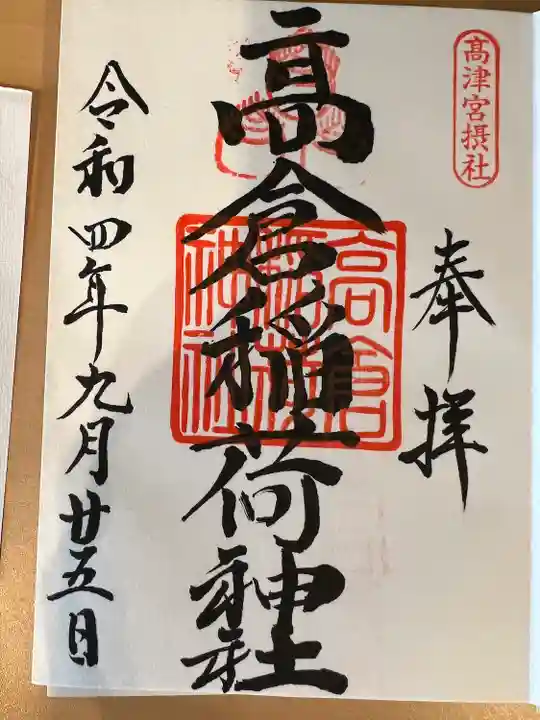 髙津宮摂社
奉拝
高倉稲荷神社
高倉稲荷神社
令和四年九月廿五日